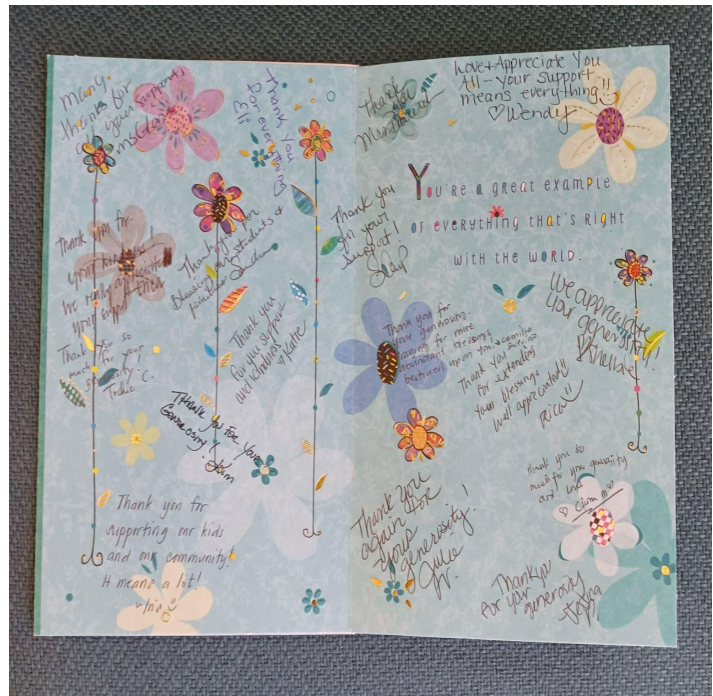 Many
thanks for
your support
Thank you
for everything
Thank you for
your kindness!
we really appreciate
your support
Thank you for
Blessing my students &
Thank you so
much for your
Tochie C.
Thank you
for your support
and kindness
♡ Katie
Thank you for your
Generosity.
Thank you for
supporting our kids
and our community!
It means a lot!
Thank
you
Love + Appreciate You
All - Your support
means everything!!
♡ Wendy
Thank you
for your
support!
You're a great example
of everything that's right
with the world.
We appreciate
your generosity!
Thank you for
your generosity.
Praying for more
abundant blessings
bestowed upon you & familia
Thank you
for extending
your blessings
Well appreciated!!
Rica
Thank you so
much for your generosity
and love
Thank you
again for
your
generosity!
Julie
W.
Thank you
for your
generosity